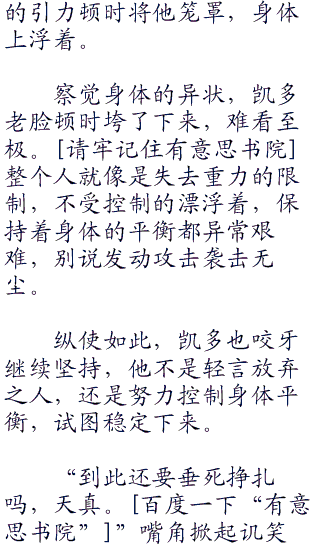 的引力顿时将他笼罩，身体
上浮着。
察觉身体的异状，凯多
老脸顿时垮了下来，难看至
极。[请牢记住有意思书院]
整个人就像是失去重力的限
制，不受控制的漂浮着，保
持着身体的平衡都异常艰
难，别说发动攻击袭击无
尘。
纵使如此，凯多也咬牙
继续坚持，他不是轻言放弃
之人，还是努力控制身体平
衡，试图稳定下来。
“到此还要垂死挣扎
吗，天真。[百度一下“有意
思书院”]”嘴角掀起讥笑